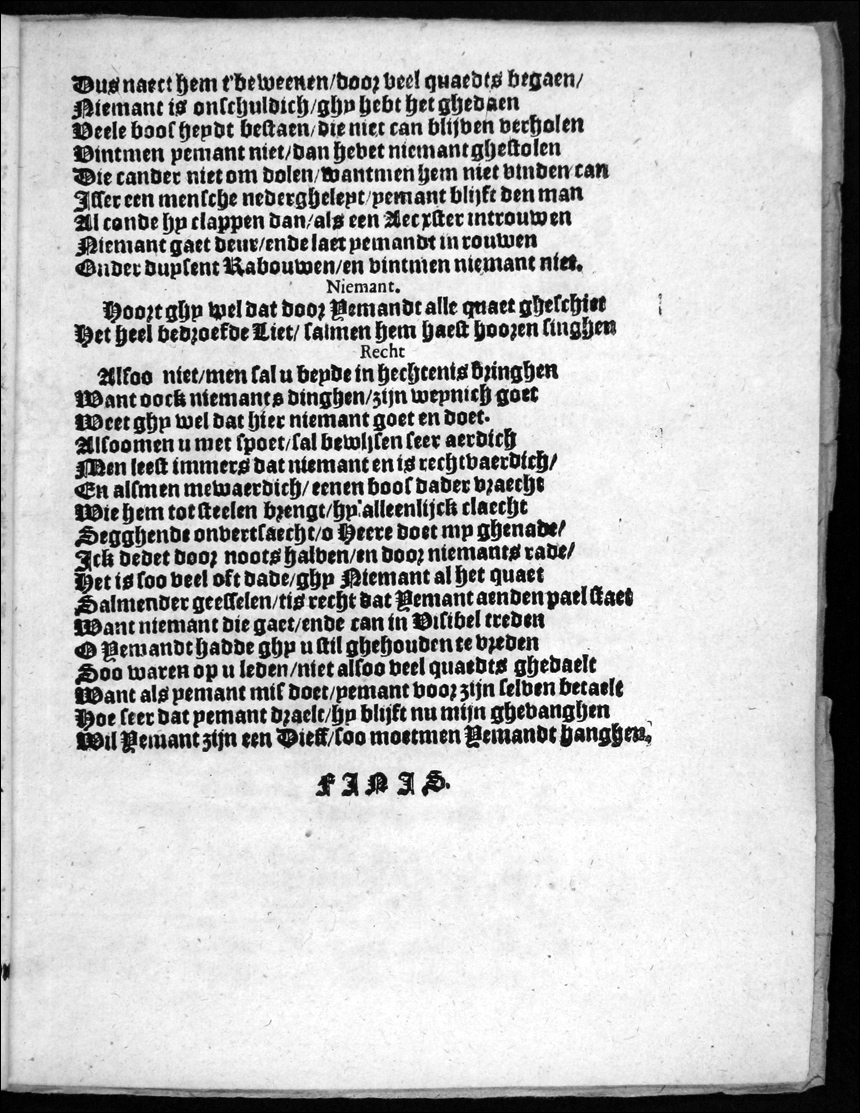 Dus naect hem t'beweenen/door veel quaedts begaen/
Niemant is onschuldich/ghy hebt het ghedaen
Veele boosheydt bestaen/die niet can blijven verholen
Vintmen yemant niet/dan hevet niemant ghestolen
Die cander niet om dolen/wantmen hem niet vinden can
Isser een mensche nedergheleyt/yemant blijft den man
Al conde hy clappen dan/als een Aecxster introuwen
Niemant gaet deur/ende laet yemandt in rouwen
Onder duysent Rabouwen/en vintmen niemant niet.
Niemant.
Hoort ghy wel dat door Yemandt alle quaet gheschiet
Het heel bedroefde Liet/ salmen hem haest hooren singhen
Recht
Alsoo niet/men sal u beyde in hechtenis bringhen
Want oock niemants dinghen/zijn weynich goet
Weet ghy wel dat hier niemant goet en doet.
Alsoomen u met spoet/sal bewijsen seer aerdich
Men leest immers dat niemant en is rechtvaerdich/
En alsmen mewaerdich/eenen boos dader vraecht
Wie hem tot steelen brengt/hy alleenlijck claecht
Segghende onvertsaecht/o Heere doet my ghenade/
Ick dedet door noots halven/en door niemants rade/
Het is soo veel oft dade/ghy Niemant al het quaet
Salmender geesselen/tis recht dat Yemant aenden pael staet
Want niemant die gaet/ende can in Visibel treden
O Yemandt hadde ghy u stil ghehouden te vreden
Soo waren op u leden/niet alsoo veel quaedts ghedaelt
Want als yemant mis doet/yemant voor zijn selven betaelt
Hoe seer dat yemant draelt/hy blijft nu mijn ghevanghen
Wil Yemant zijn een Dieff/soo moetmen Yemandt hanghen.
FINIS.